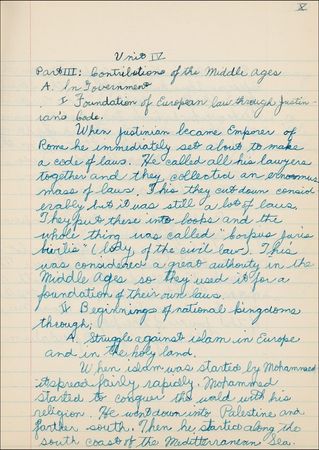 V
Unit IV
Part III: Contributions of the Middle Ages
A. In Government
I Foundation of European law through Justin-
ian's Code.
When Justinian became Emporer of
Rome he immediately set about to make
a code of laws. He called all his lawyers
together and they collected an enormous
mass of laws. This they cut down consid
erably but it was still a lot of laws.
They put these into books and the
whole thing was called "Corpus juris
civilis" (body of the civil law). This
was considered a great authority in the
Middle Ages so they used it for a
foundation of their own laws
II Beginnings of national kingdoms
through;
A. Struggle against islam in Europe
and in the holy land.
When islam was started by Mohammed
it spread fairly rapidly. Mohammed
started to conquer the world with his
religion. He went down into Palestine and
farther south. Then he started along the
south coast of the Mediterranean Sea.